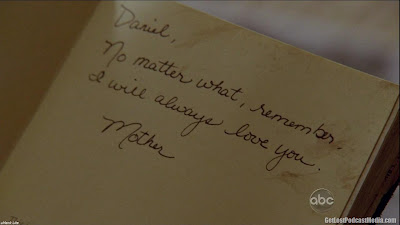 Daniel,
No matter what, remember.
I will always love you.
Mother
abc
GetLostPodcastMedia.com